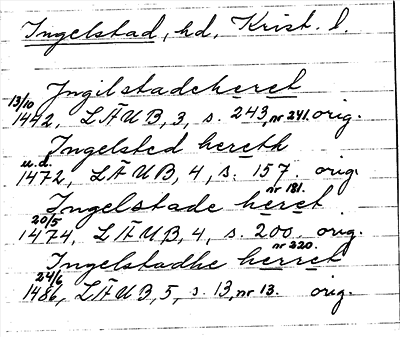 Ingelstad, hd, Krist. l.
Jngilstadeheret
13/10
1442, LÄUB, 3, s. 243, nr 241. orig.
Ingelsted hereth
u.d.
1472, LÄUB, 4, s. 157. orig.
nr 181.
Ingelstade heret
20/5
1474, LÄUB, 4, s. 200. orig.
nr 220.
Ingelstadhe herret
24/6
1486, LÄUB, 5, s. 13, nr 13. orig.